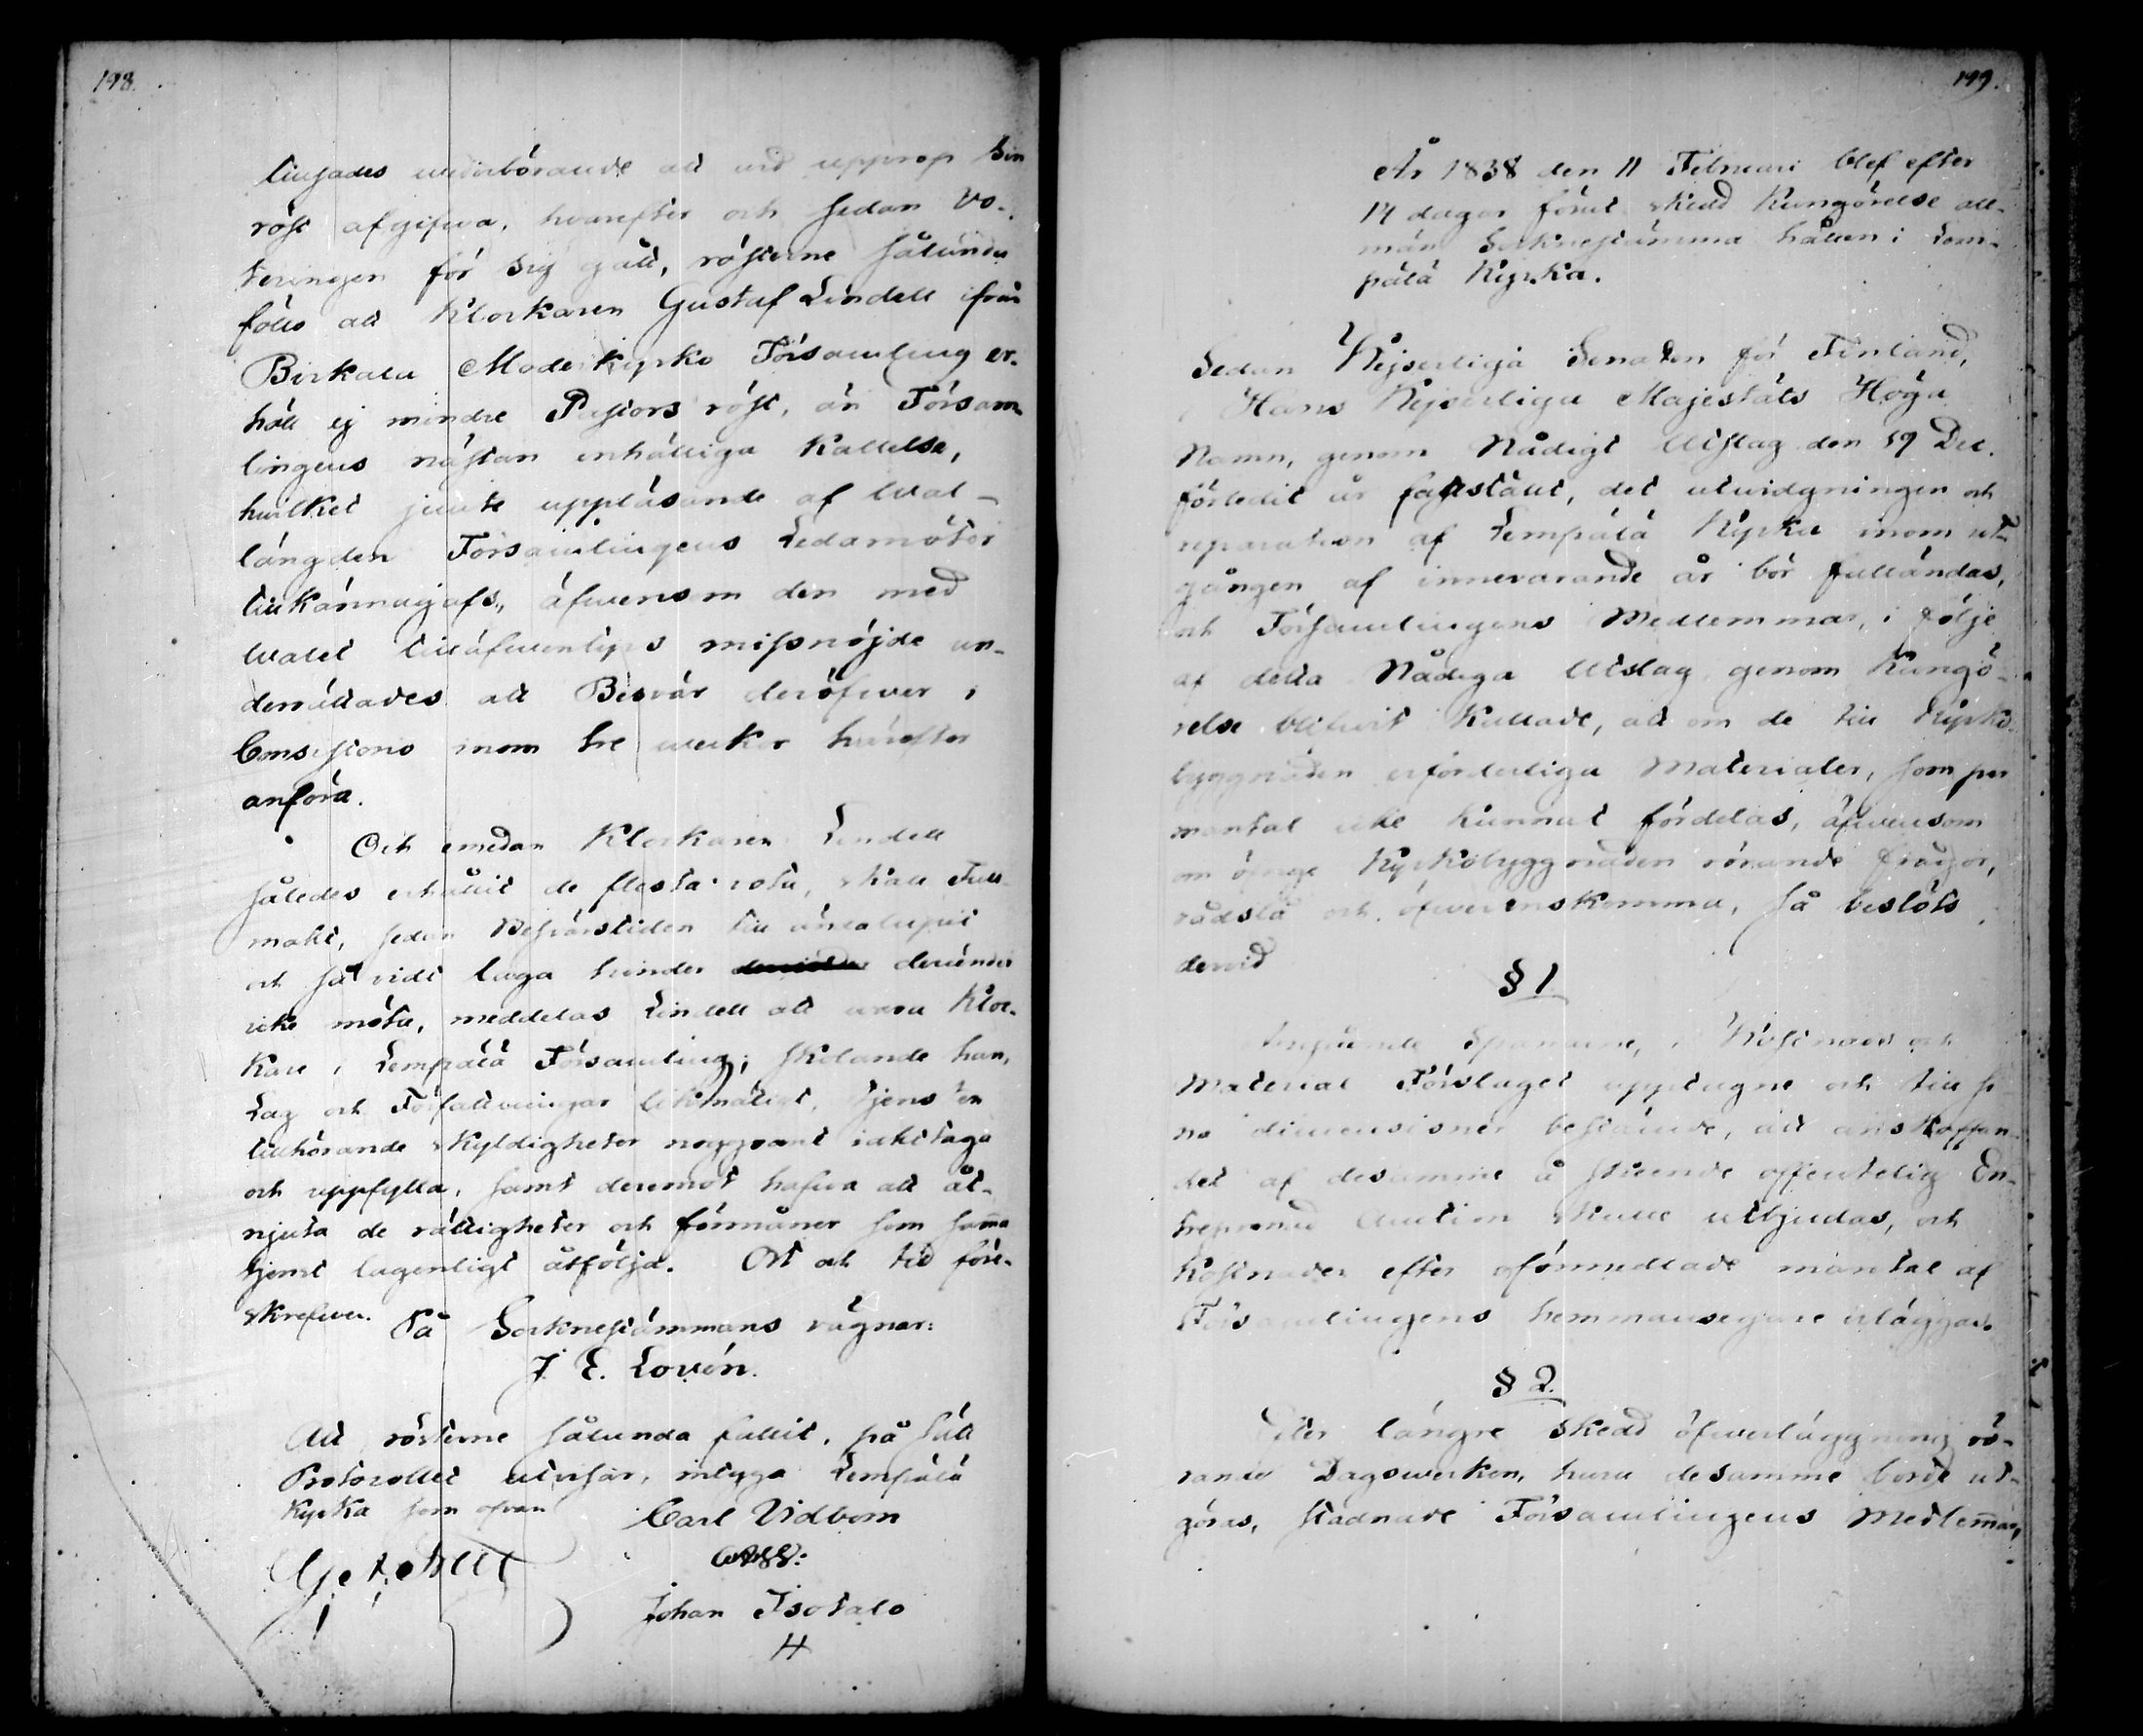 198.
tillsades vederbörande att vid upprop sin
röst afgifva, hvarefter och sedan Vo-
teringen för sig gått, rösterne sålunda
föllo att Klockaren Gustaf Lindell ifrån
Birkala Moderkyrko Församling er-
höll ej mindre Pastors röst, än Försam-
lingens nästan enhälliga Kallelse,
hvilket jemte uppläsande af Wal-
längden Församlingens Ledamöter
tillkännagafs, äfvensom den med
Walet tilläfventyrs missnöjde un-
derrättades att Besvär deröfver i
Consistorio inom tre weckor härefter
anföra.
Och emedan Klockaren Lindell
således erhållit de flesta vota, skall Full-
makt, sedan Besvärstiden till ända lupit
och så vidt laga hinder derunder
icke möta, meddelas Lindell att vara Kloc-
kare i Lempälä Församling; skolande han,
Lag och Författningar likmätigt, tjensten
tillhörande skyldigheter noggrant iakttaga
och uppfylla, samt deremot hafva att åt-
njuta de rättigheter och förmåner som samma
tjenst lagenligt åtfölja. Ort och tid före-
skrefven. På Socknestämmans vägnar:
J. E. Lovén.
Att rösterne sålunda fallit, på sätt
Protocollet utvisar, intyga Lempälä
Kyrka som ofvan
Carl Vidbom
Johan Isotalo
H
199.
År 1838 den 11 Februari blef efter
14 dagar förut skedd Kungörelse all-
män Socknestämma hållen i Lem-
pälä Kyrka.
Sedan Kejserliga Senaten för Finland,
i Hans Kejserliga Majestäts Höga
Namn, genom Nådigt Utslag den 19 Dec.
förledit år faststält, det utvidgningen och
reparation af Lempälä Kyrka inom ut-
gången af innevarande år bör fulländas,
och Församlingens Medlemmar, i följe
af detta Nådiga Utslag genom Kungö-
relse blifvit kallade, att om de till Kyrko-
byggnaden erforderliga Materialer, som per
mantal icke kunnat fördelas, äfvensom
om öfrige Kyrkobyggnaden rörande frågor,
rådslå och öfverenskomma, så beslöts
dervid
§ 1
Angående Spannarne, i Kostnads och
Material Förslaget upptagne och till si-
na dimensioner bestämde, att anskaffan-
det af desamme å skeende offentelig En-
treprenad Auction skulle utbjudas, och
Kostnaden efter oförmedlade mantal af
Församlingens hemmansegare erläggas.
§ 2.
Efter längre skedd öfverläggning rö-
rande Dagsverken, huru desamme borde ut-
göras, stadnade Församlingens Medlemmar,